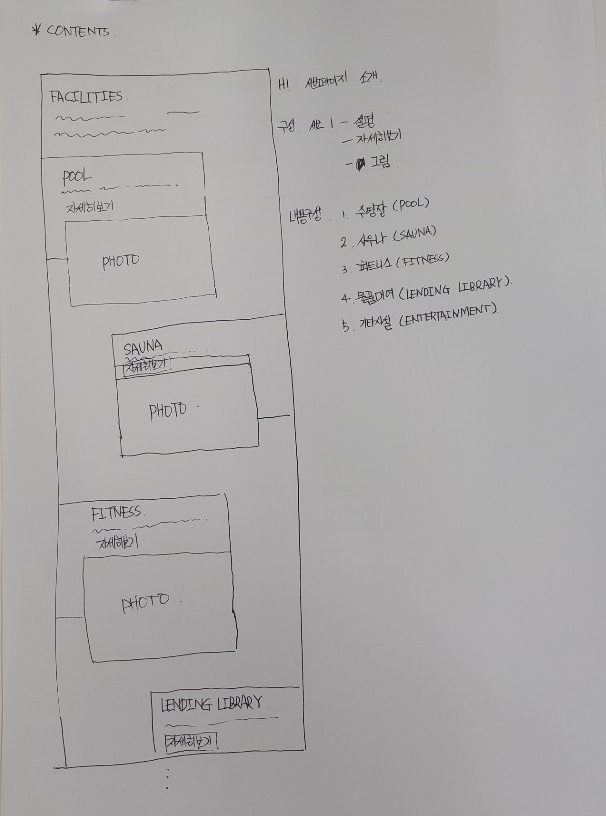 * CONTENTS.
FACILITIES.
POOL
자세히보기
PHOTO
SAUNA
자세히보기
PHOTO.
FITNESS.
자세히보기
PHOTO.
LENDING LIBRARY.
자세히보기
H1 서브페이지 소개.
구성. 섹션 1 - 설명
- 자세히보기
- 그림
내용구성. 1. 수영장 (POOL)
2. 사우나 (SAUNA)
3. 피트니스 (FITNESS)
4. 물품대여 (LENDING LIBRARY).
5. 기타시설 (ENTERTAINMENT).